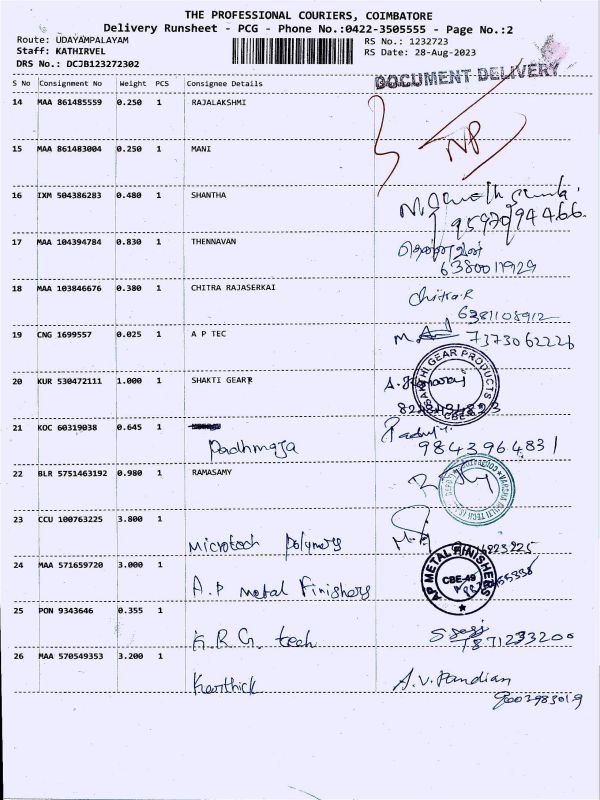 THE PROFESSIONAL COURIERS, COIMBATORE
Delivery Runsheet - PCG - Phone No.:0422-3505555 - Page No.:2
Route: UDAYAMPALAYAM
RS No.: 1232723
Staff: KATHIRVEL
RS Date: 28-Aug-2023
DRS No.: DCJB123272302
DOCUMENT DELIVERY
S No Consignment No Weight PCS Consignee Details
14 MAA 861485559 0.250 1 RAJALAKSHMI
NP
15 MAA 861483004 0.250 1 MANI
16 IXM 504386283 0.480 1 SHANTHA
9597094466.
17 MAA 104394784 0.830 1 THENNAVAN
தென்னவன்
6380011929
18 MAA 103846676 0.380 1 CHITRA RAJASERKAI
Chitra.R
6381108912
19 CNG 1699557 0.025 1 A P TEC
7373062226
20 KUR 530472111 1.000 1 SHAKTI GEAR
SAKTHI GEAR PRODUCTS
CBE
21 KOC 60319038 0.645 1
Padhmaja
9843964831
22 BLR 5751463192 0.980 1 RAMASAMY
23 CCU 100763225 3.800 1
Microtech Polymers
24 MAA 571659720 3.000 1
A.P Metal Finishers
AP METAL FINISHERS
CBE-49
25 PON 9343646 0.355 1
K.R.G. tech
7871233200
26 MAA 570549353 3.200 1
Karthick
A.V. Pandian
9003983019